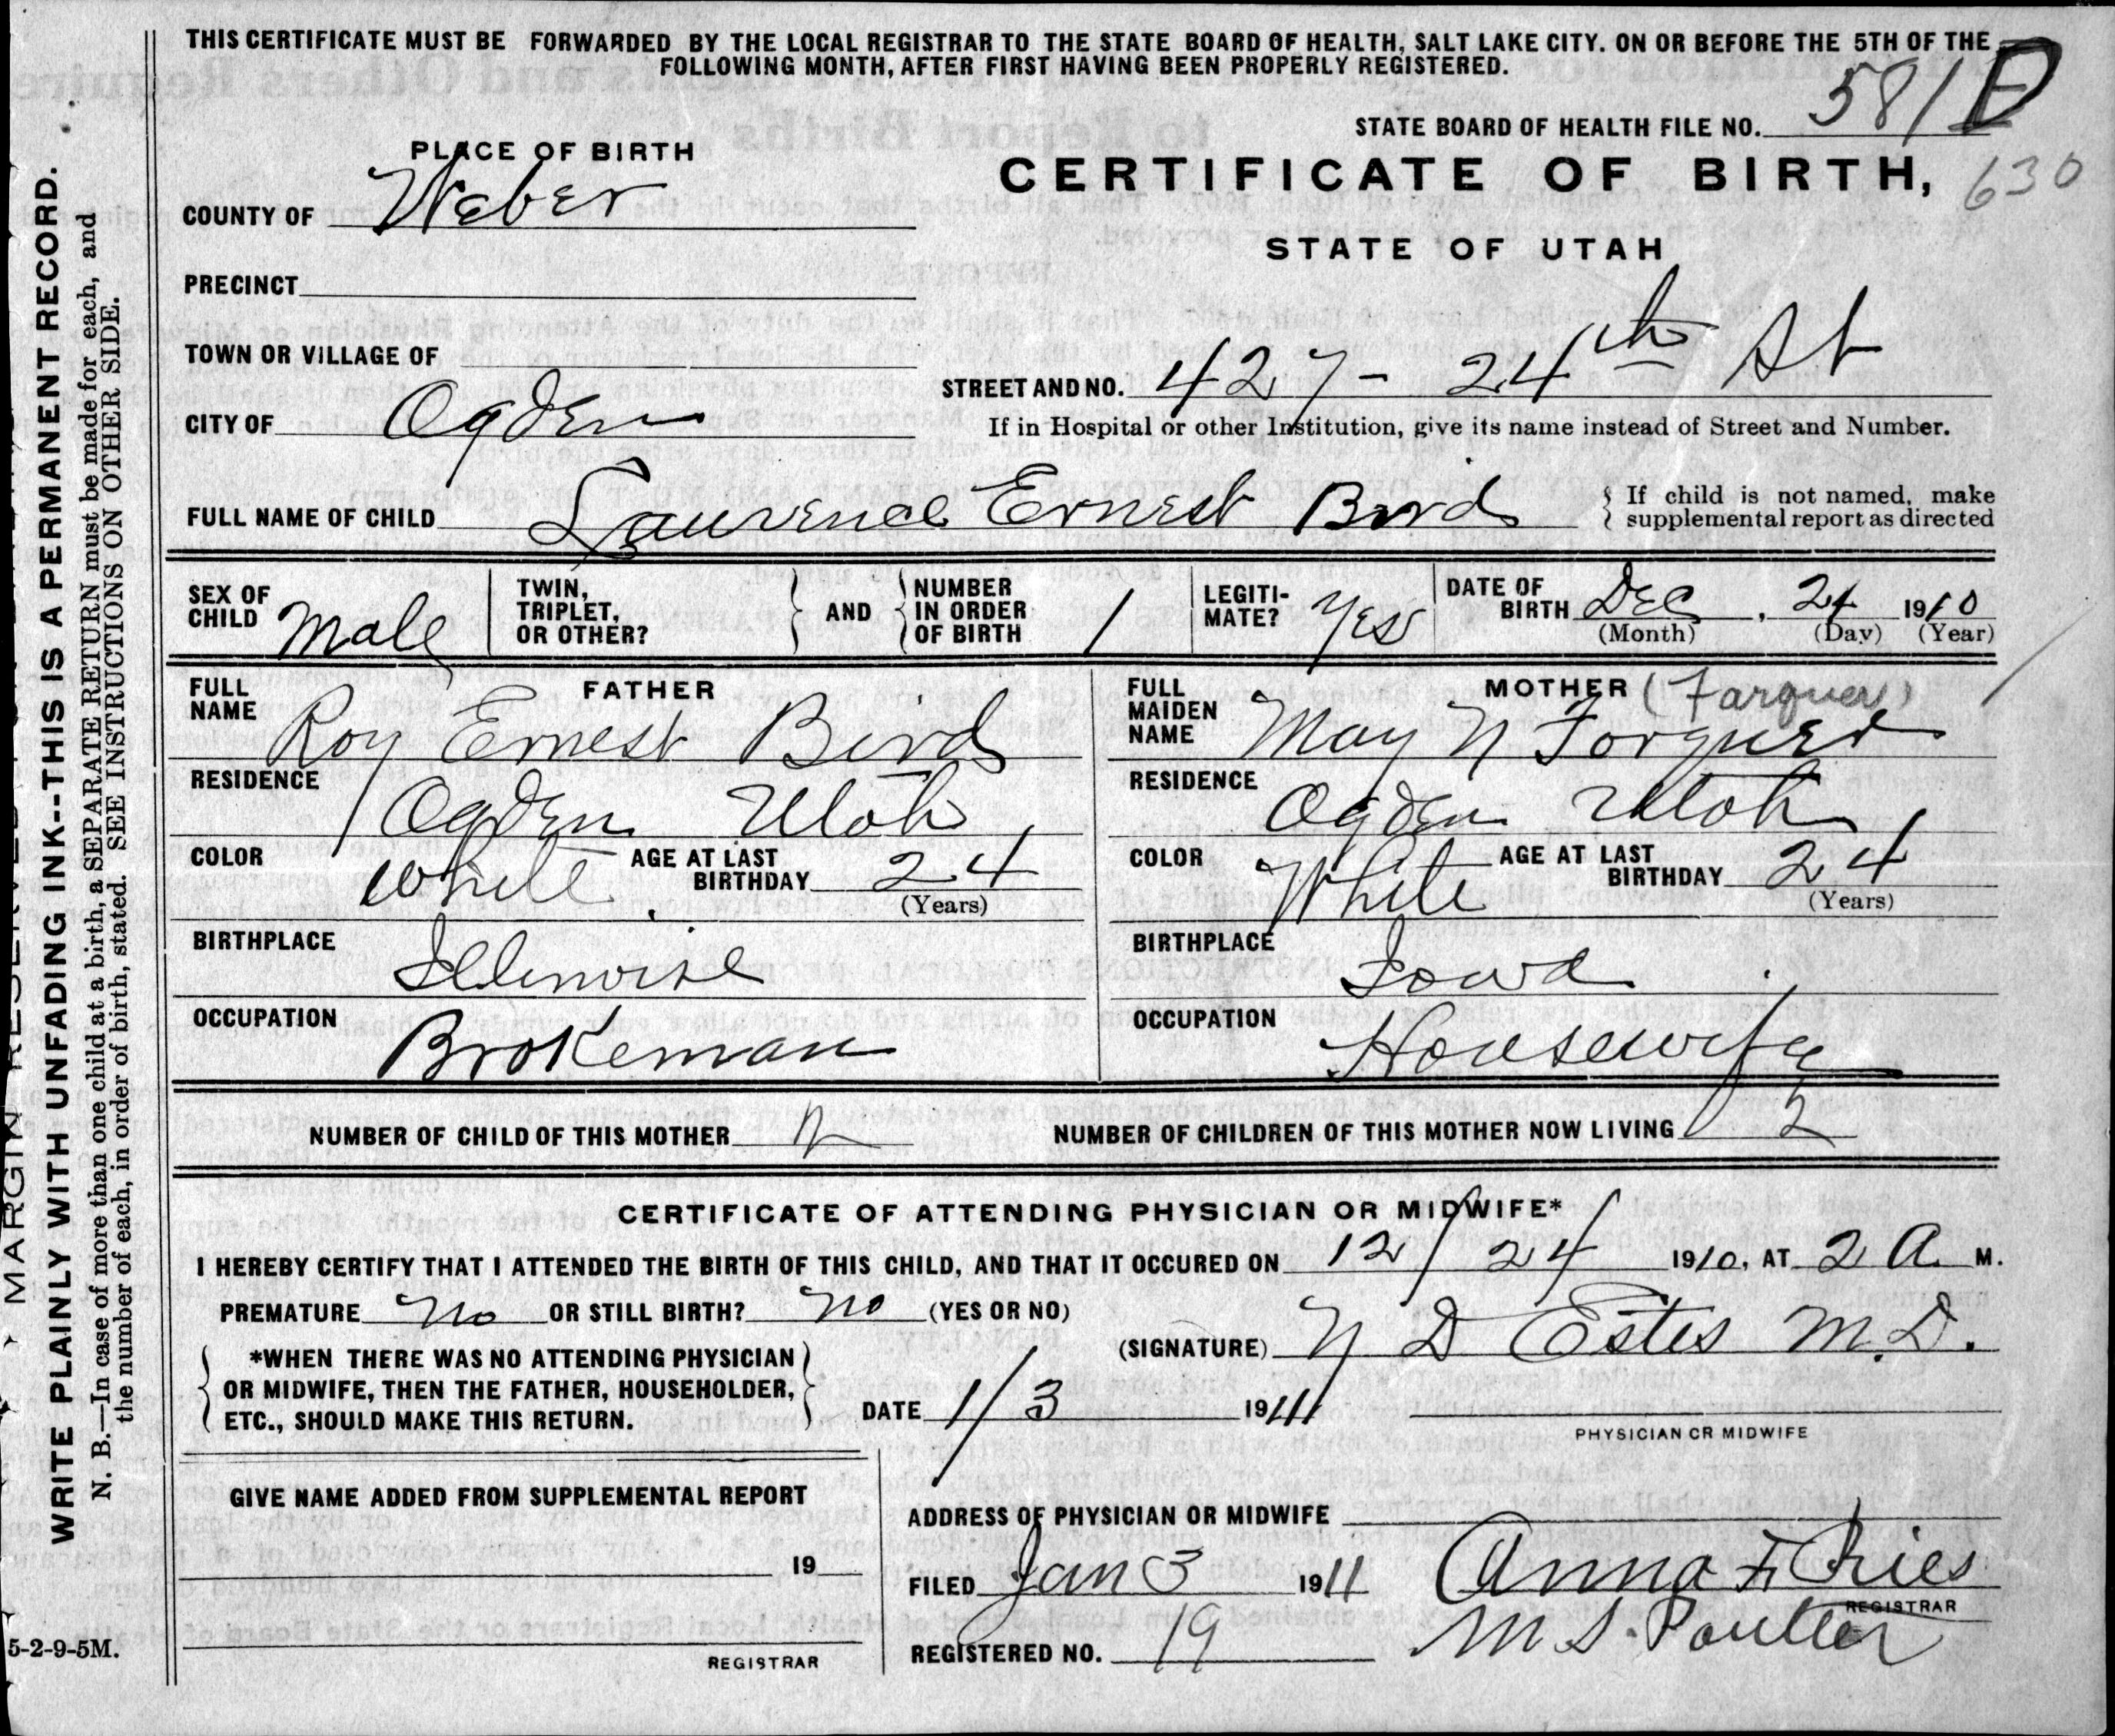 THIS CERTIFICATE MUST BE FORWARDED BY THE LOCAL REGISTRAR TO THE STATE BOARD OF HEALTH, SALT LAKE CITY. ON OR BEFORE THE 5TH OF THE
FOLLOWING MONTH, AFTER FIRST HAVING BEEN PROPERLY REGISTERED.
STATE BOARD OF HEALTH FILE NO. 581 D
630
PLACE OF BIRTH
CERTIFICATE OF BIRTH,
STATE OF UTAH
COUNTY OF Weber
PRECINCT
TOWN OR VILLAGE OF
STREET AND NO. 427 - 24th St
CITY OF Ogden
If in Hospital or other Institution, give its name instead of Street and Number.
FULL NAME OF CHILD Laurence Ernest Bird
If child is not named, make
supplemental report as directed
SEX OF CHILD Male
TWIN, TRIPLET, OR OTHER?
AND
NUMBER IN ORDER OF BIRTH 1
LEGITIMATE? Yes
DATE OF BIRTH Dec, 24 1910
(Month) (Day) (Year)
FATHER
FULL NAME Roy Ernest Bird
RESIDENCE Ogden Utah
COLOR White AGE AT LAST BIRTHDAY 24
(Years)
BIRTHPLACE Illinoise
OCCUPATION Brakeman
MOTHER (Farquer)
FULL MAIDEN NAME May N Forquer
RESIDENCE Ogden Utah
COLOR White AGE AT LAST BIRTHDAY 24
(Years)
BIRTHPLACE Iowa
OCCUPATION Housewife
NUMBER OF CHILD OF THIS MOTHER 2
NUMBER OF CHILDREN OF THIS MOTHER NOW LIVING 2
CERTIFICATE OF ATTENDING PHYSICIAN OR MIDWIFE*
I HEREBY CERTIFY THAT I ATTENDED THE BIRTH OF THIS CHILD, AND THAT IT OCCURED ON 12/24 1910, AT 2 A. M.
PREMATURE No OR STILL BIRTH? No (YES OR NO)
(SIGNATURE) N D Estes M.D.
*WHEN THERE WAS NO ATTENDING PHYSICIAN
OR MIDWIFE, THEN THE FATHER, HOUSEHOLDER,
ETC., SHOULD MAKE THIS RETURN.
DATE 1/3 1911
PHYSICIAN OR MIDWIFE
GIVE NAME ADDED FROM SUPPLEMENTAL REPORT
19
REGISTRAR
ADDRESS OF PHYSICIAN OR MIDWIFE
FILED Jan 3 1911 Anna F Ries
REGISTRAR
REGISTERED NO. 19 M. S. Poulter
MARGIN RESERVED
WRITE PLAINLY WITH UNFADING INK--THIS IS A PERMANENT RECORD.
N. B.—In case of more than one child at a birth, a SEPARATE RETURN must be made for each, and
the number of each, in order of birth, stated. SEE INSTRUCTIONS ON OTHER SIDE.
5-2-9-5M.